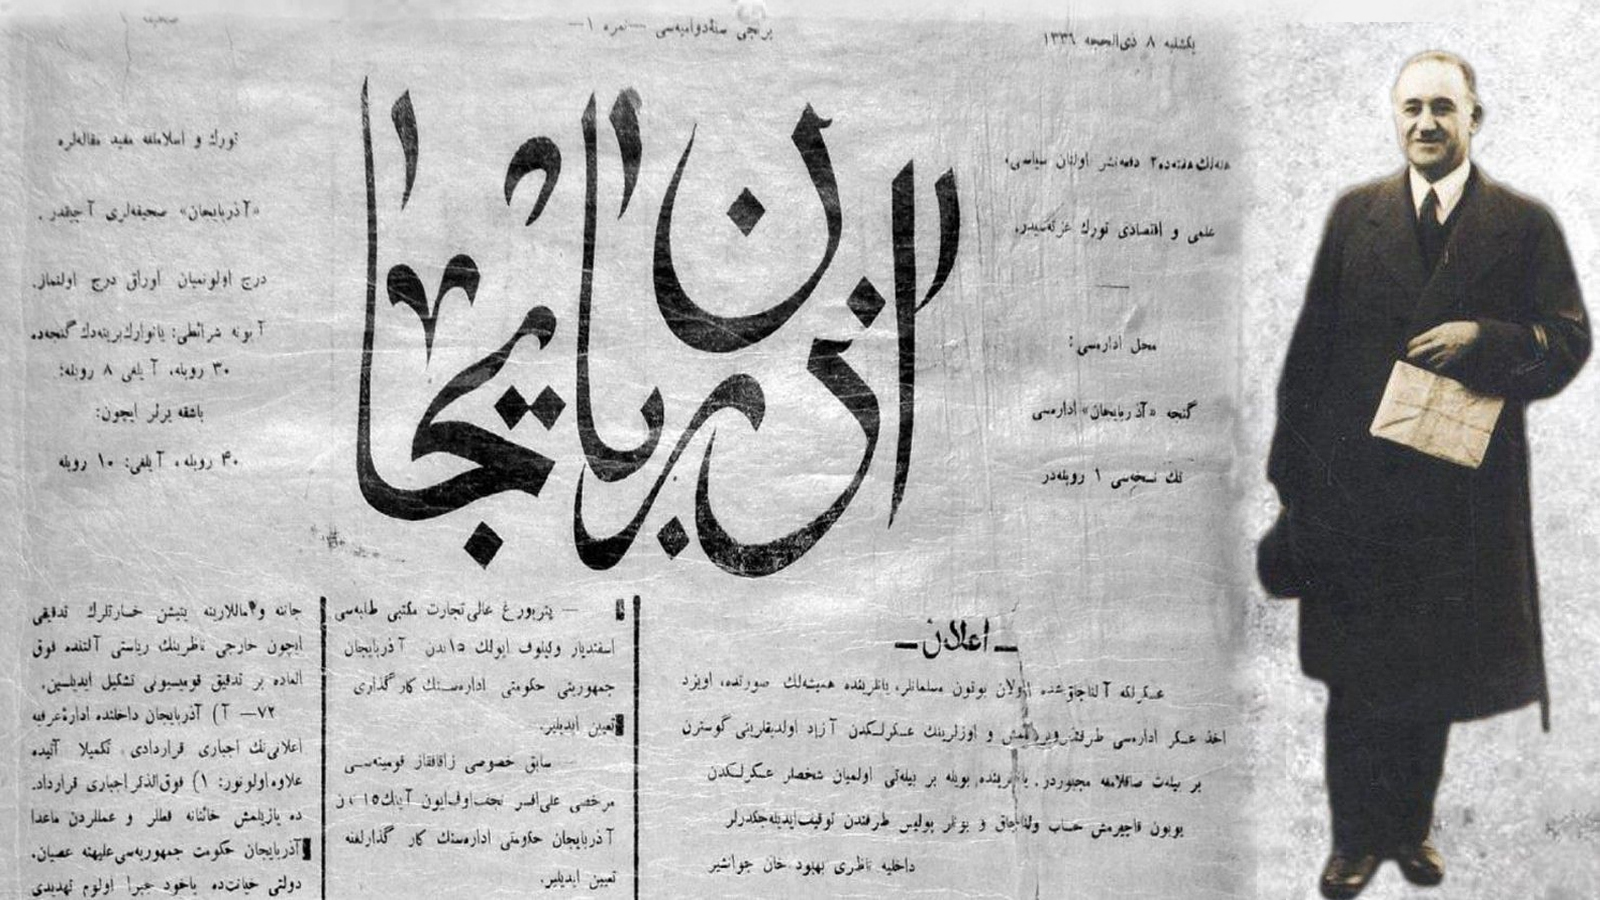 یكشنبه ۸ ذی‌الحجه ۱۳۳۶
برنجی سنهٔ دوامیه‌سی — نمره ۱ —
صحیفه
آذربایجان
هفته‌ده ۲ دفعه نشر اولنان سیاسی،
علمی و اقتصادی تورك غزته‌سیدر.
محل اداره‌سی:
گنجه «آذربایجان» اداره‌سی
تك نسخه‌سی ۱ روبله‌در
تورك و اسلاملغه مفید مقاله‌لره
«آذربایجان» صحیفه‌لری آچیقدر.
درج اولونمیان اوراق درج اولنماز.
آبونه شرائطی: یانوارك برینه‌دك گنجه‌ده.
۳۰ روبله، آیلغی ۸ روبله؛
باشقه یرلر ایچون:
۴۰ روبله، آیلغی: ۱۰ روبله
— اعلان —
عسكرلكه آلناجاق شده اولان بوتون مسلمانلر، یانلرینده همیشه‌لك صورتده، اویزد
اخذ عسكر اداره‌سی طرفندن ویریلمش و اوزلرینك عسكرلكدن آزاد اولدیقلرینی گوسترن
بر بیله‌ت صاقلامغه مجبوردر. یانلرینده بویله بر بیله‌تی اولمیان شخصلر عسكرلكدن
بویون قاچیرمش حساب ولناجاق و بونلر پولیس طرفندن توقیف ایدیله‌جكدرلر
داخلیه ناظری بهبود خان جوانشیر
— پتربورغ عالی تجارت مكتبی طلبه‌سی
اسفندیار وكیلوف ایولك ۱۵ندن آذربایجان
جمهوریتی حكومتی اداره‌سنك كارگذاری
تعیین ایدیلیر.
سابق خصوصی زاقافقاز قومیته‌سی
مرخصی علی‌افسر نجف‌اوف ایون آینك ۱۵ ندن
آذربایجان حكومتی اداره‌سنك كار گذارلغنه
تعیین ایدیلیر.
جاننه و ماللارینه یتیشن خسارتلرك تدقیقی
ایچون خارجی ناظرینك ریاستی آلتنده فوق
العاده بر تدقیق قومیسیونی تشكیل ایدیلسین.
۷۲— آ) آذربایجان داخلنده ادارهٔ عرفیه
اعلانی‌نك اجباری قراردادی، تكمیلا آتیده
علاوه اولونور: ۱) فوق‌الذكر اجباری قرارداد.
ده یازیلمش خائنانه فعللر و عمللردن ماعدا
آذربایجان حكومت جمهوریه‌سی علیهنه عصیان.
دولتی خیانت‌ده یاخود جبرا اولوم تهدیدی